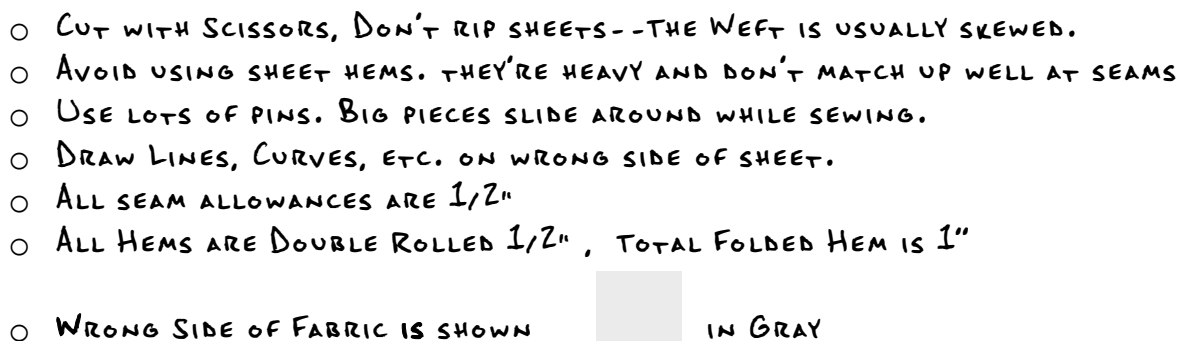 ○ Cut with Scissors, Don't rip sheets--the Weft is usually skewed.
○ Avoid using sheet hems. they're heavy and don't match up well at seams
○ Use lots of pins. Big pieces slide around while sewing.
○ Draw Lines, Curves, etc. on wrong side of sheet.
○ All seam allowances are 1/2"
○ All Hems are Double Rolled 1/2", Total Folded Hem is 1"
○ Wrong Side of Fabric is shown in Gray